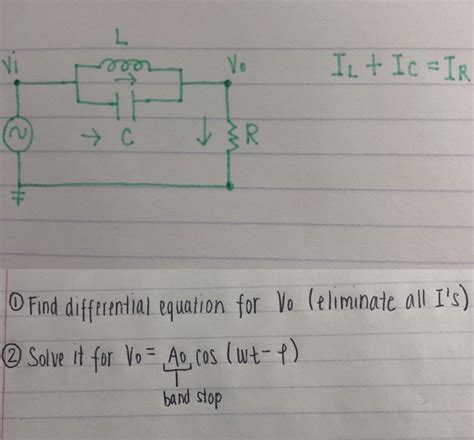 L
Vi
Vo
IL + IC = IR
C
R
① Find differential equation for Vo (eliminate all I's)
② Solve it for Vo = Ao cos (wt - φ)
band stop